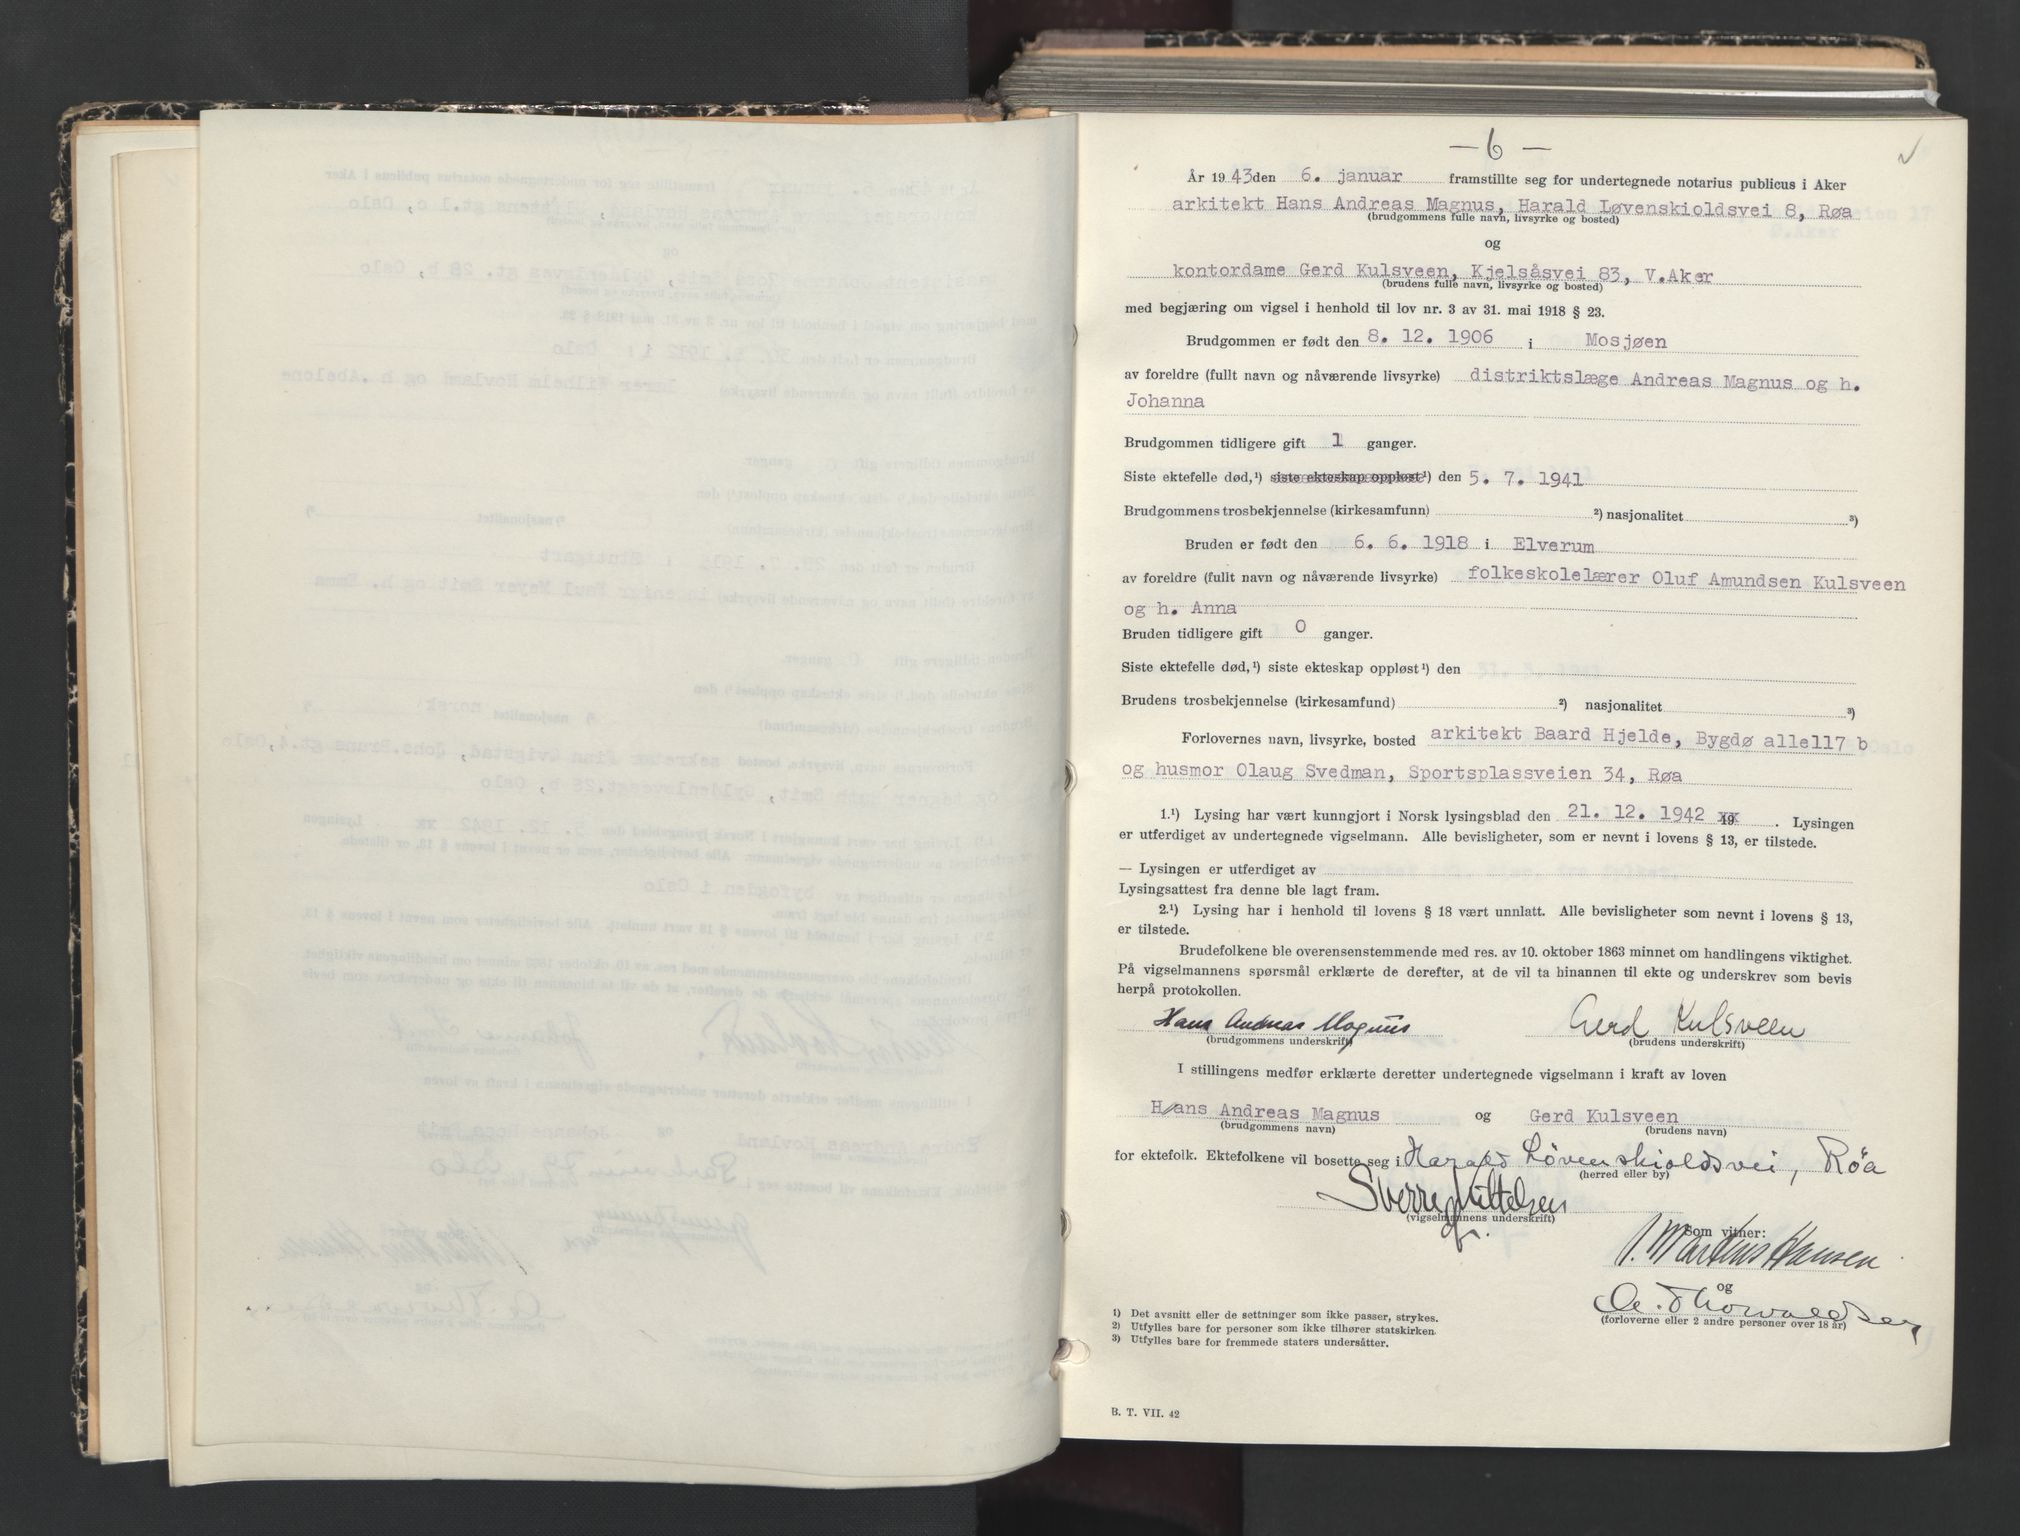 — 6 —
År 1943 den 6. januar framstillte seg for undertegnede notarius publicus i Aker
arkitekt Hans Andreas Magnus, Harald Løvenskioldsvei 8, Røa
(brudgommens fulle navn, livsyrke og bosted)
og
kontordame Gerd Kulsveen, Kjelsåsvei 83, V.Aker
(brudens fulle navn, livsyrke og bosted)
med begjæring om vigsel i henhold til lov nr. 3 av 31. mai 1918 § 23.
Brudgommen er født den 8. 12. 1906 i Mosjøen
av foreldre (fullt navn og nåværende livsyrke) distriktslæge Andreas Magnus og h.
Johanna
Brudgommen tidligere gift 1 ganger.
Siste ektefelle død,¹) siste ekteskap oppløst¹) den 5. 7. 1941
Brudgommens trosbekjennelse (kirkesamfunn) ²) nasjonalitet ³)
Bruden er født den 6. 6. 1918 i Elverum
av foreldre (fullt navn og nåværende livsyrke) folkeskolelærer Oluf Amundsen Kulsveen
og h. Anna
Bruden tidligere gift 0 ganger.
Siste ektefelle død,¹) siste ekteskap oppløst¹) den
Brudens trosbekjennelse (kirkesamfund) ²) nasjonalitet ³)
Forlovernes navn, livsyrke, bosted arkitekt Baard Hjelde, Bygdø alle117 b
og husmor Olaug Svedman, Sportsplassveien 34, Røa
1.¹) Lysing har vært kunngjort i Norsk lysingsblad den 21. 12. 1942 19 . Lysingen
er utferdiget av undertegnede vigselmann. Alle bevisligheter, som er nevnt i lovens § 13, er tilstede.
— Lysingen er utferdiget av
Lysingsattest fra denne ble lagt fram.
2.¹) Lysing har i henhold til lovens § 18 vært unnlatt. Alle bevisligheter som nevnt i lovens § 13,
er tilstede.
Brudefolkene ble overensenstemmende med res. av 10. oktober 1863 minnet om handlingens viktighet.
På vigselmannens spørsmål erklærte de derefter, at de vil ta hinannen til ekte og underskrev som bevis
herpå protokollen.
Hans Andreas Magnus Gerd Kulsveen
(brudgommens underskrift) (brudens underskrift)
I stillingens medfør erklærte deretter undertegnede vigselmann i kraft av loven
Hans Andreas Magnus og Gerd Kulsveen
(brudgommens navn) (brudens navn)
for ektefolk. Ektefolkene vil bosette seg i Harald Løvenskioldsvei, Røa
(herred eller by)
Sverre Kittelsen
(vigselmannens underskrift)
Som vitner:
J. Martinus Hansen
og
(forloverne eller 2 andre personer over 18 år)
¹) Det avsnitt eller de settninger som ikke passer, strykes.
²) Utfylles bare for personer som ikke tilhører statskirken.
³) Utfylles bare for fremmede staters undersåtter.
B. T. VII. 42